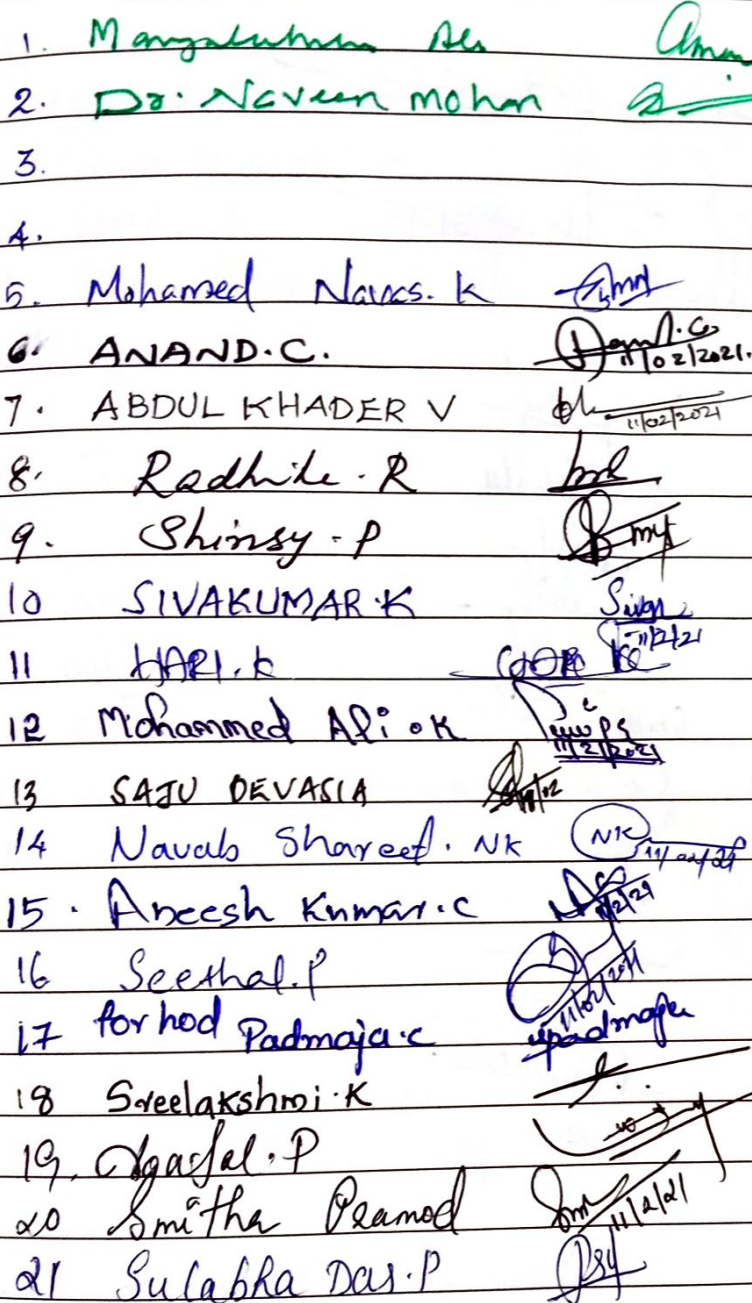 1. Ali
2. Dr. Naveen Mohan
3.
4.
5. Mohamed Navas. K
6. ANAND.C. 11/02/2021.
7. ABDUL KHADER V 11/02/2021
8. Radhika . R
9. Shinsy - P
10 SIVAKUMAR.K 11/2/21
11 HARI.K
12 Mohammed Ali . K 11/2/2021
13 SAJU DEVASIA
14 Navab Shareef. NK NK
15. Aneesh Kumar.C
16 Seethal.P 11/02/2021
17 for hod Padmaja.C Padmaja
18 Sreelakshmi.K
19. P
20 Smitha Pramod 11/2/21
21 Sulabha Das.P